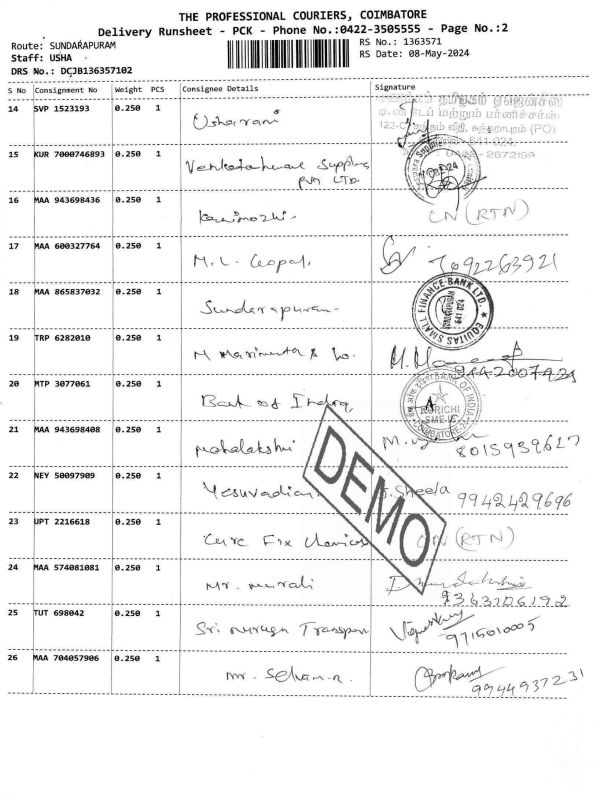 THE PROFESSIONAL COURIERS, COIMBATORE
Delivery Runsheet - PCK - Phone No.:0422-3505555 - Page No.:2
Route: SUNDARAPURAM
RS No.: 1363571
Staff: USHA
RS Date: 08-May-2024
DRS No.: DCJB136357102
S No Consignment No Weight PCS Consignee Details Signature
14 SVP 1523193 0.250 1 Usharani
15 KUR 7000746893 0.250 1 Venkatahwal Supplies
Pvt LTD.
16 MAA 943698436 0.250 1 Kanimozhi. CN (RTN)
17 MAA 600327764 0.250 1 M. L. Gopal. 7692263921
18 MAA 865837032 0.250 1 Sundarapuram
EQUITAS SMALL FINANCE BANK LTD.
SUNDARAPURAM
641 024
19 TRP 6282010 0.250 1 M Marimuta & Co.
20 MTP 3077061 0.250 1 Bank of India
BANK OF INDIA
KURICHI
SME
COIMBATORE
21 MAA 943698408 0.250 1 Mahalakshmi 8015939627
22 NEY 50097909 0.250 1 Yesuvadian J. Sheela 9942429696
23 UPT 2216618 0.250 1 Care Fix Chemicals CN (RTN)
24 MAA 574081081 0.250 1 Mr. Murali
9363706192
25 TUT 698042 0.250 1 Sri Murugan Transport 9715010005
26 MAA 704057906 0.250 1 Mr. 9944937231
DEMO